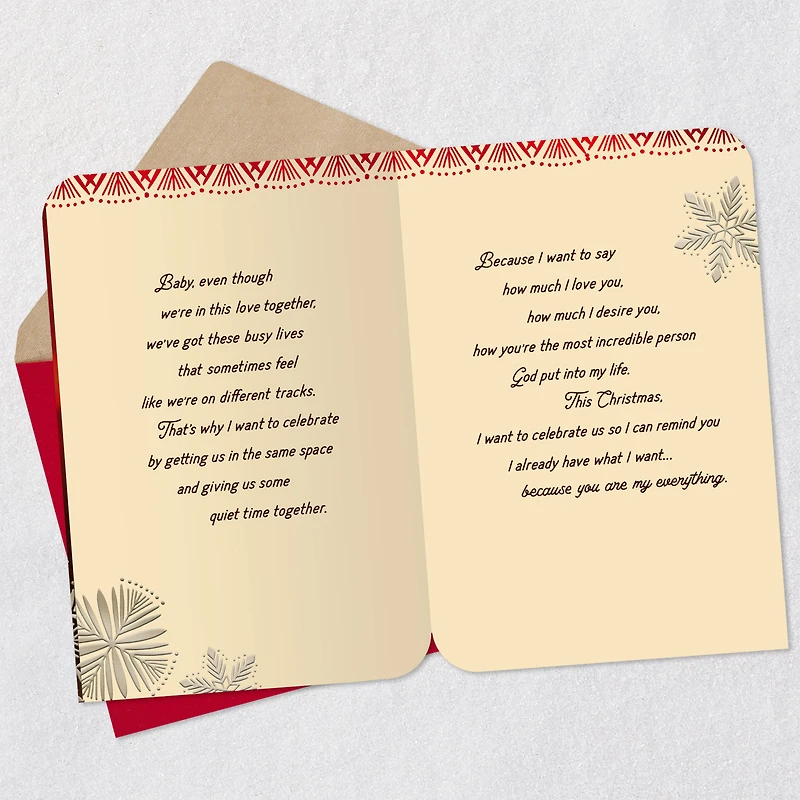 Baby, even though
we're in this love together,
we've got these busy lives
that sometimes feel
like we're on different tracks.
That's why I want to celebrate
by getting us in the same space
and giving us some
quiet time together.
Because I want to say
how much I love you,
how much I desire you,
how you're the most incredible person
God put into my life.
This Christmas,
I want to celebrate us so I can remind you
I already have what I want...
because you are my everything.